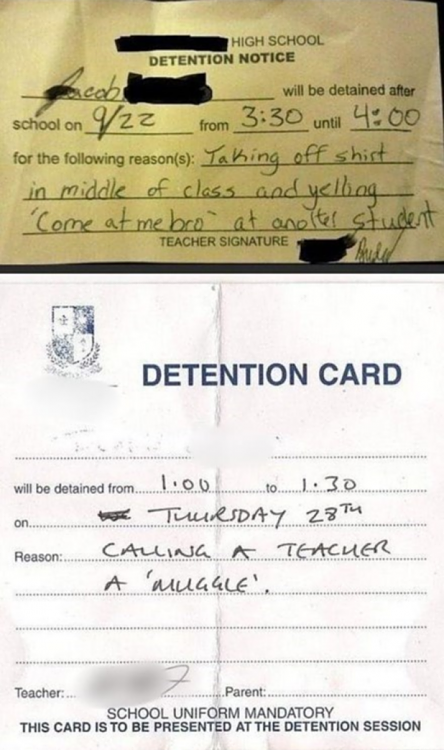 HIGH SCHOOL
DETENTION NOTICE
Jacob will be detained after
school on 9/22 from 3:30 until 4:00
for the following reason(s): Taking off shirt
in middle of class and yelling
"Come at me bro" at another student
TEACHER SIGNATURE
DETENTION CARD
will be detained from 1.00 to 1.30
on THURSDAY 28TH
Reason: CALLING A TEACHER
A 'MUGGLE'.
Teacher: Parent:
SCHOOL UNIFORM MANDATORY
THIS CARD IS TO BE PRESENTED AT THE DETENTION SESSION